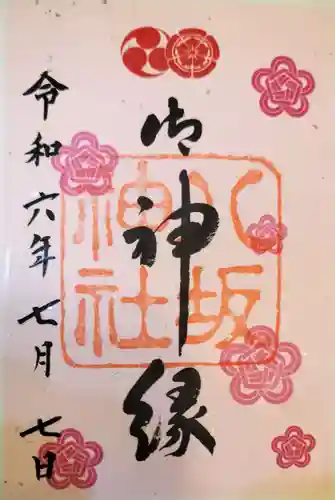 御神縁
八坂神社
令和六年七月七日